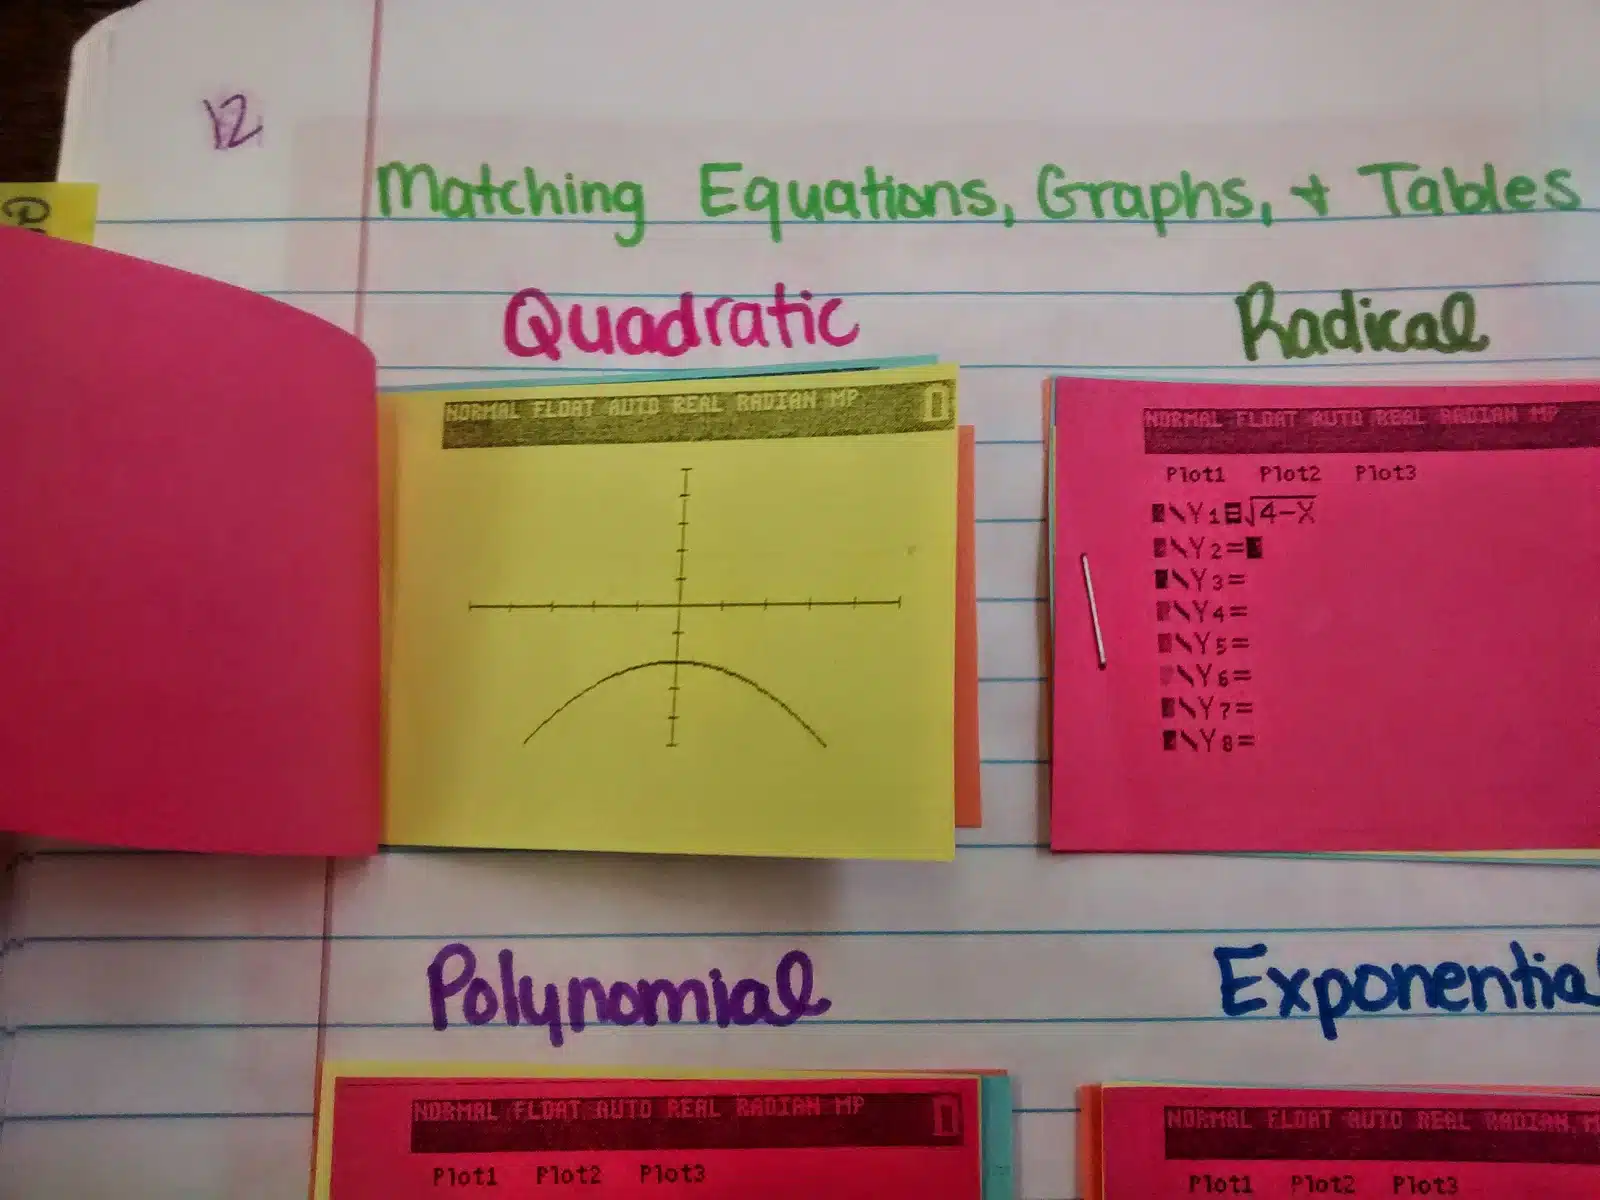 12
Matching Equations, Graphs, & Tables
Quadratic
Radical
NORMAL FLOAT AUTO REAL RADIAN MP
NORMAL FLOAT AUTO REAL RADIAN MP
Plot1 Plot2 Plot3
\Y1=√4-X
\Y2=
\Y3=
\Y4=
\Y5=
\Y6=
\Y7=
\Y8=
Polynomial
Exponential
NORMAL FLOAT AUTO REAL RADIAN MP
Plot1 Plot2 Plot3
NORMAL FLOAT AUTO REAL RADIAN M
Plot1 Plot2 Plot3